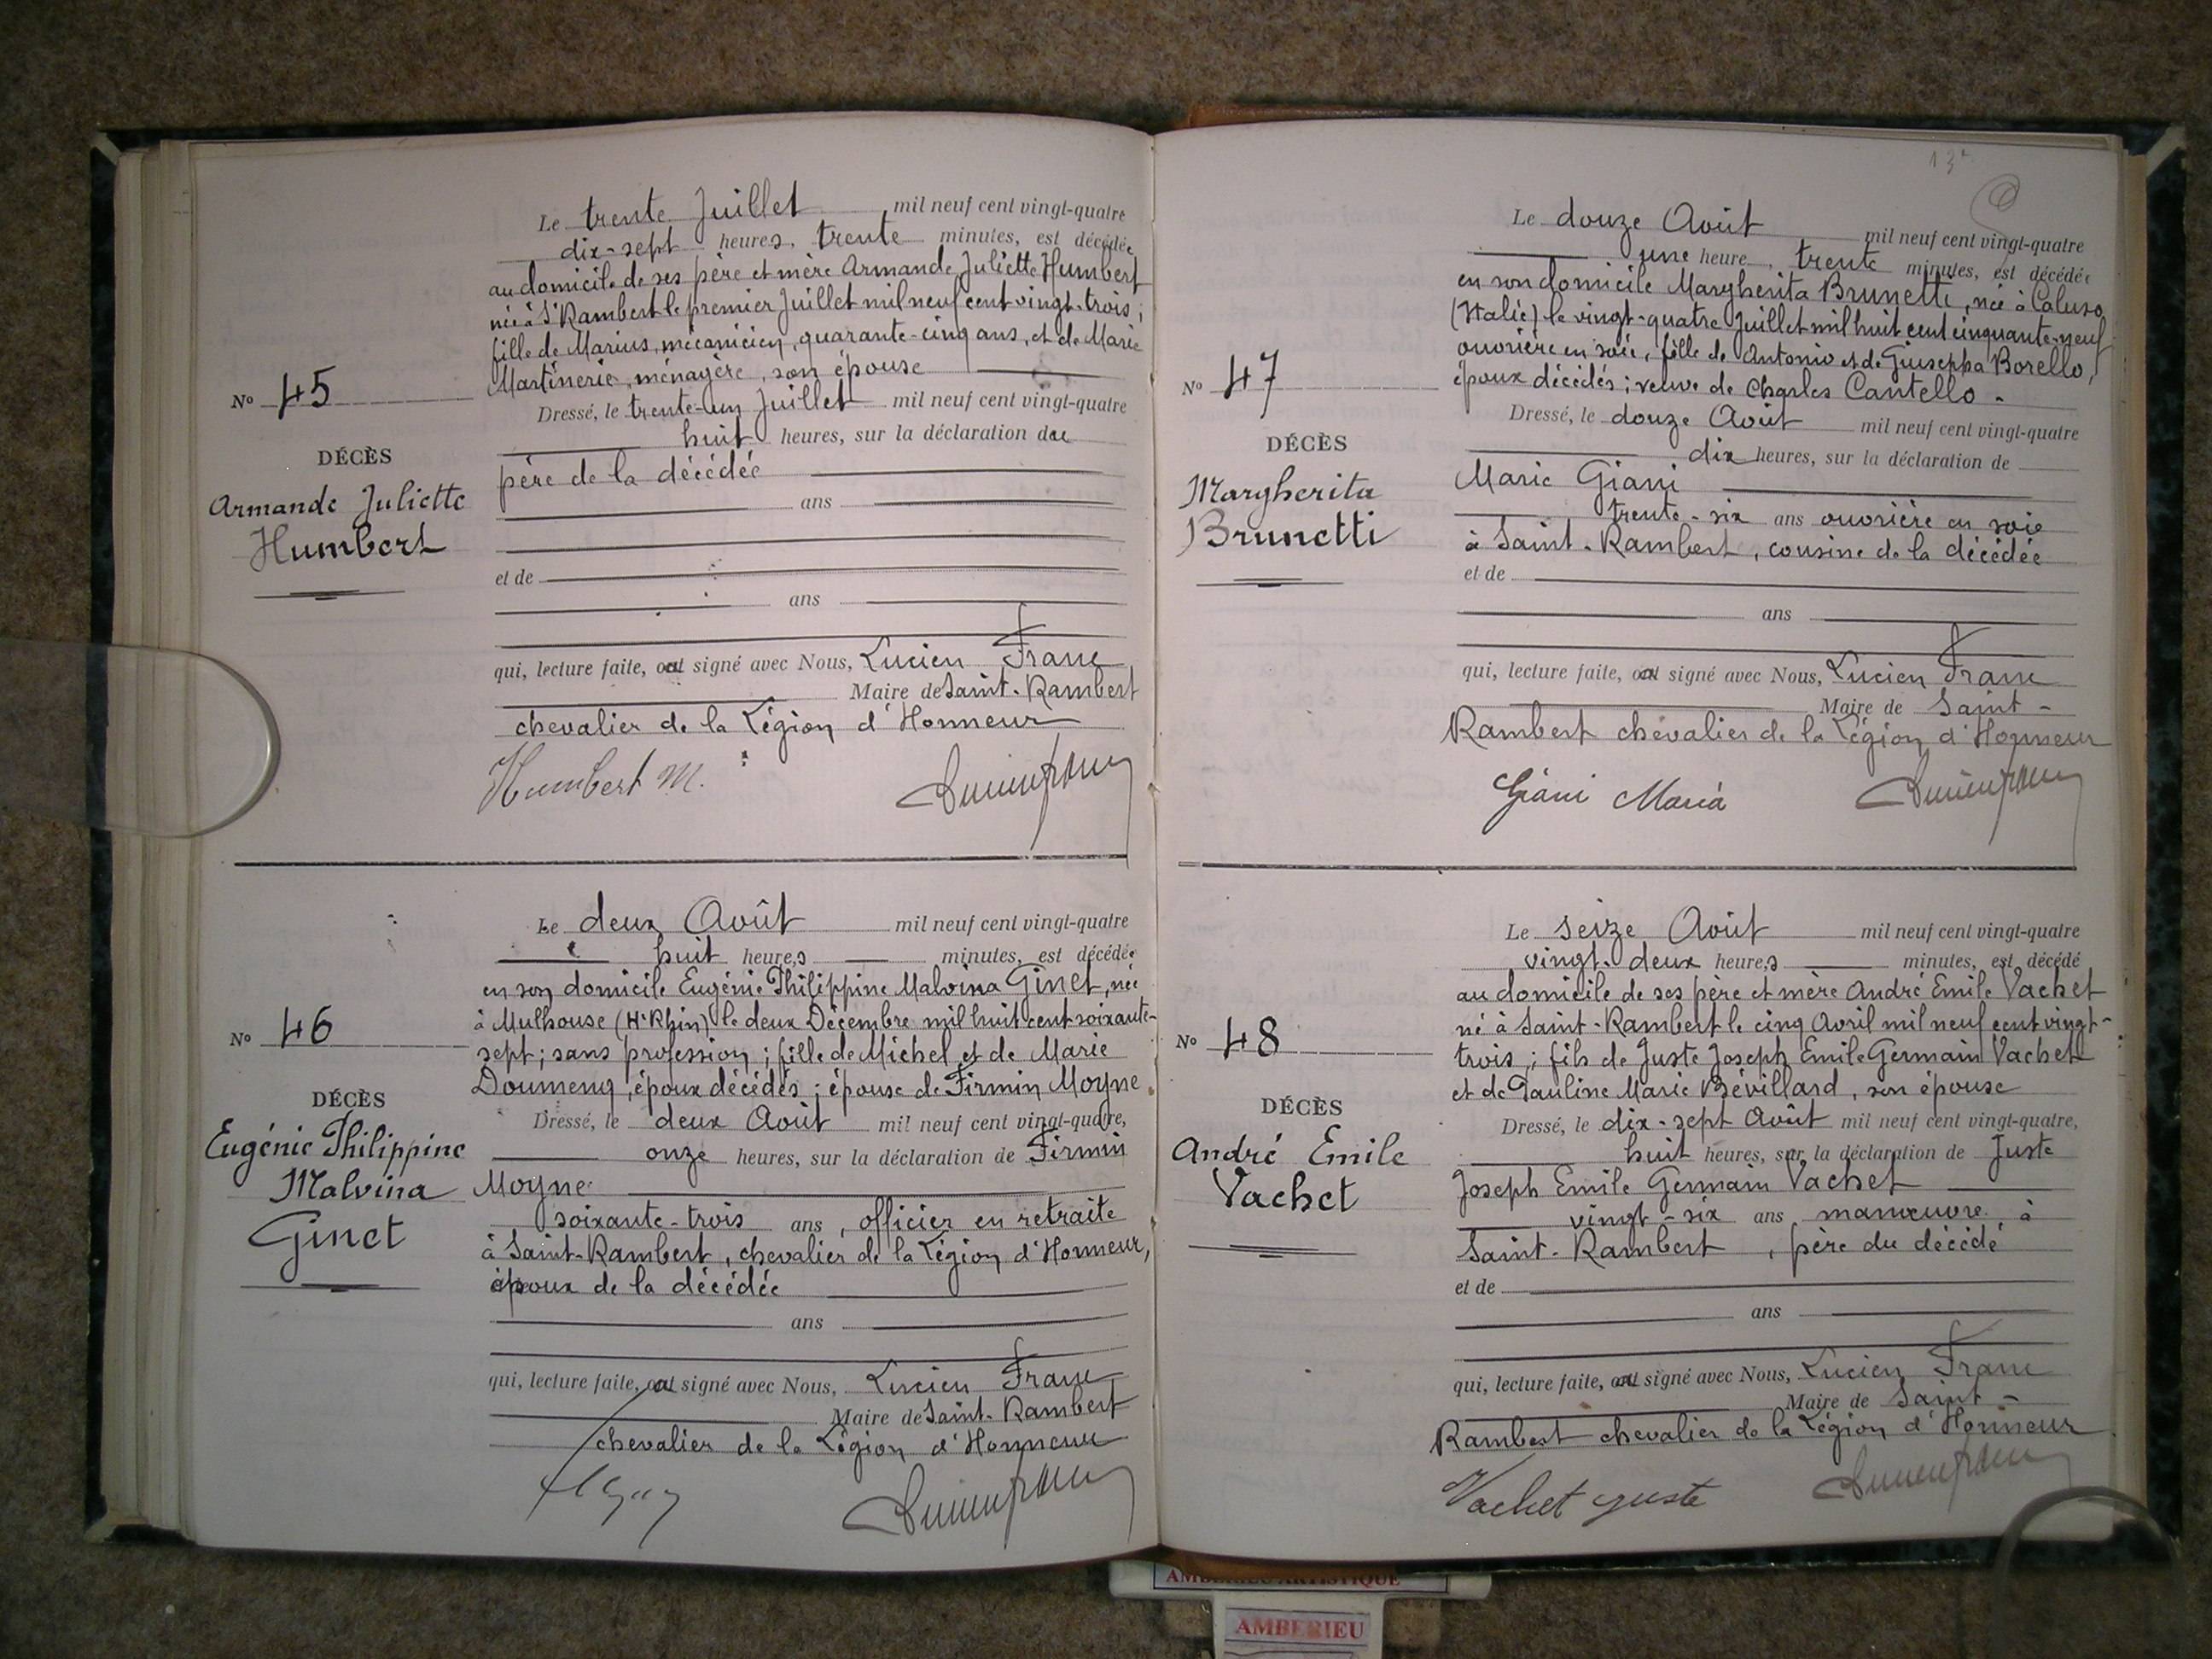 Le trente Juillet mil neuf cent vingt-quatre
dix-sept heures, trente minutes, est décédée
au domicile de ses père et mère Armande Juliette Humbert
née à St Rambert le premier Juillet mil neuf cent vingt-trois ;
fille de Marius, mécanicien, quarante-cinq ans, et de Marie
Martinerie, ménagère, son épouse
No 45
Dressé, le trente-un Juillet mil neuf cent vingt-quatre
huit heures, sur la déclaration du
DÉCÈS
père de la décédée
Armande Juliette
ans
Humbert
et de
ans
qui, lecture faite, a signé avec Nous, Lucien Franc
Maire de Saint-Rambert
chevalier de la Légion d'Honneur
Humbert M.
Le deux Août mil neuf cent vingt-quatre
huit heures minutes, est décédée
en son domicile Eugénie Philippine Malvina Ginet, née
à Mulhouse (Ht Rhin) le deux Décembre mil huit cent soixante-
sept ; sans profession ; fille de Michel et de Marie
Doumeng, époux décédés ; épouse de Firmin Moyne.
No 46
DÉCÈS
Dressé, le deux Août mil neuf cent vingt-quatre,
onze heures, sur la déclaration de Firmin
Eugénie Philippine
Malvina
Ginet
Moyne
soixante-trois ans, officier en retraite
à Saint-Rambert, chevalier de la Légion d'Honneur,
époux de la décédée
ans
qui, lecture faite, a signé avec Nous, Lucien Franc
Maire de Saint-Rambert
chevalier de la Légion d'Honneur
Le douze Août mil neuf cent vingt-quatre
une heure trente minutes, est décédée
en son domicile Margherita Brunetti, née à Caluso
(Italie) le vingt-quatre Juillet mil huit cent cinquante-neuf
ouvrière en soie, fille de Antonio et de Giusepha Borello,
époux décédés ; veuve de Charles Cantello -
No 47
Dressé, le douze Août mil neuf cent vingt-quatre
DÉCÈS
dix heures, sur la déclaration de
Margherita
Brunetti
Marie Giani
trente-six ans ouvrière en soie
à Saint-Rambert, cousine de la décédée
et de
ans
qui, lecture faite, a signé avec Nous, Lucien Franc
Maire de Saint-
Rambert chevalier de la Légion d'Honneur
Giani Maria
Le seize Août mil neuf cent vingt-quatre
vingt-deux heures minutes, est décédé
au domicile de ses père et mère André Emile Vachet
né à Saint-Rambert le cinq Avril mil neuf cent vingt-
trois ; fils de Juste Joseph Emile Germain Vachet
et de Pauline Marie Bévillard, son épouse
No 48
DÉCÈS
Dressé, le dix-sept Août mil neuf cent vingt-quatre,
huit heures, sur la déclaration de Juste
André Emile
Vachet
Joseph Emile Germain Vachet
vingt-six ans manœuvre à
Saint-Rambert, père du décédé
et de
ans
qui, lecture faite, a signé avec Nous, Lucien Franc
Maire de Saint-
Rambert chevalier de la Légion d'Honneur
Vachet Juste
AMBERIEU ARTISTIQUE
AMBERIEU